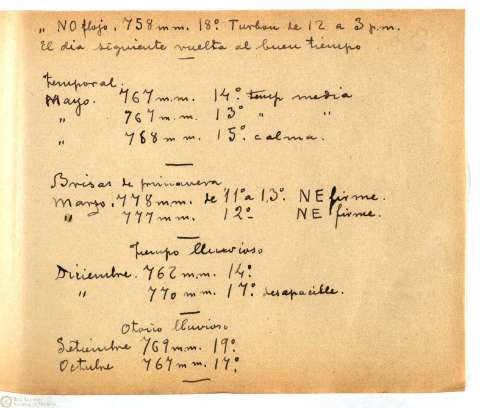 " NO flojo. 758 m.m. 18º Turbon de 12 a 3 p.m.
El dia siguiente vuelta al buen tiempo
temporal.
Mayo. 767 m.m. 14º temp media
" 767 m.m. 13º " "
" 768 m.m. 15º calma.
Brisas de primavera
Marzo. 778 m.m. de 11º a 13º. NE firme.
" 777 m.m. 12º NE firme.
Tiempo lluvioso
Diciembre. 762 m.m. 14º.
" 770 m.m. 17º. desapacible.
Otoño lluvioso
Setiembre 769 m.m. 19º.
Octubre 767 m.m. 17º.